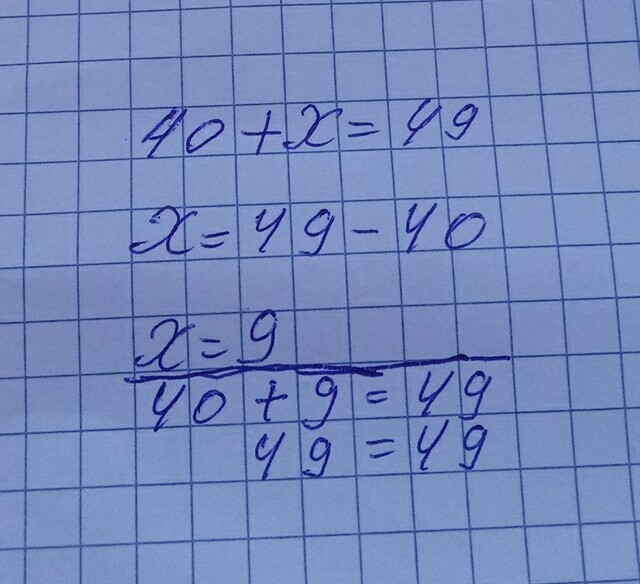 40 + x = 49
x = 49 - 40
x = 9
40 + 9 = 49
49 = 49